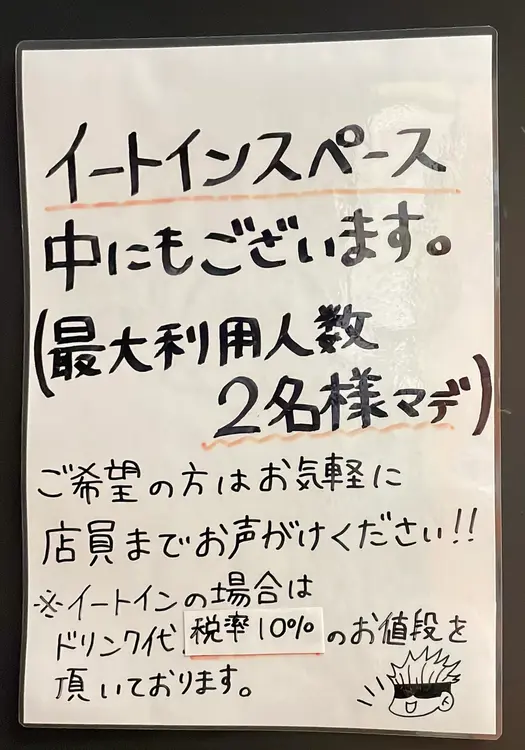 イートインスペース
中にもございます。
(最大利用人数
2名様マデ)
ご希望の方はお気軽に
店員までお声がけください!!
※イートインの場合は
ドリンク代 税率10%のお値段を
頂いております。